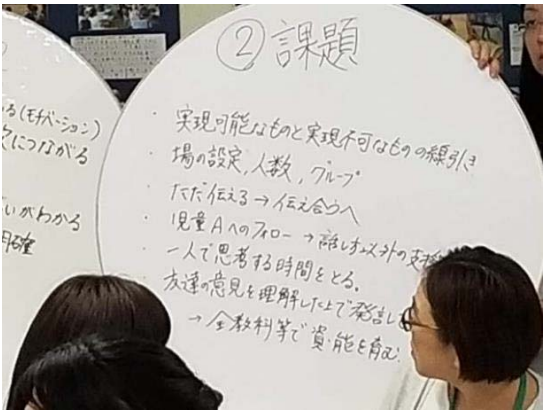 る(モチベーション)
次につながる
いがわかる
明確
② 課題
・実現可能なものと実現不可なものの線引き
・場の設定,人数,グループ
・ただ伝える→伝え合うへ
・児童Aへのフォロー→話し方以外の支援
・一人で思考する時間をとる。
友達の意見を理解した上で発言し
→全教科等で資・能を育む.